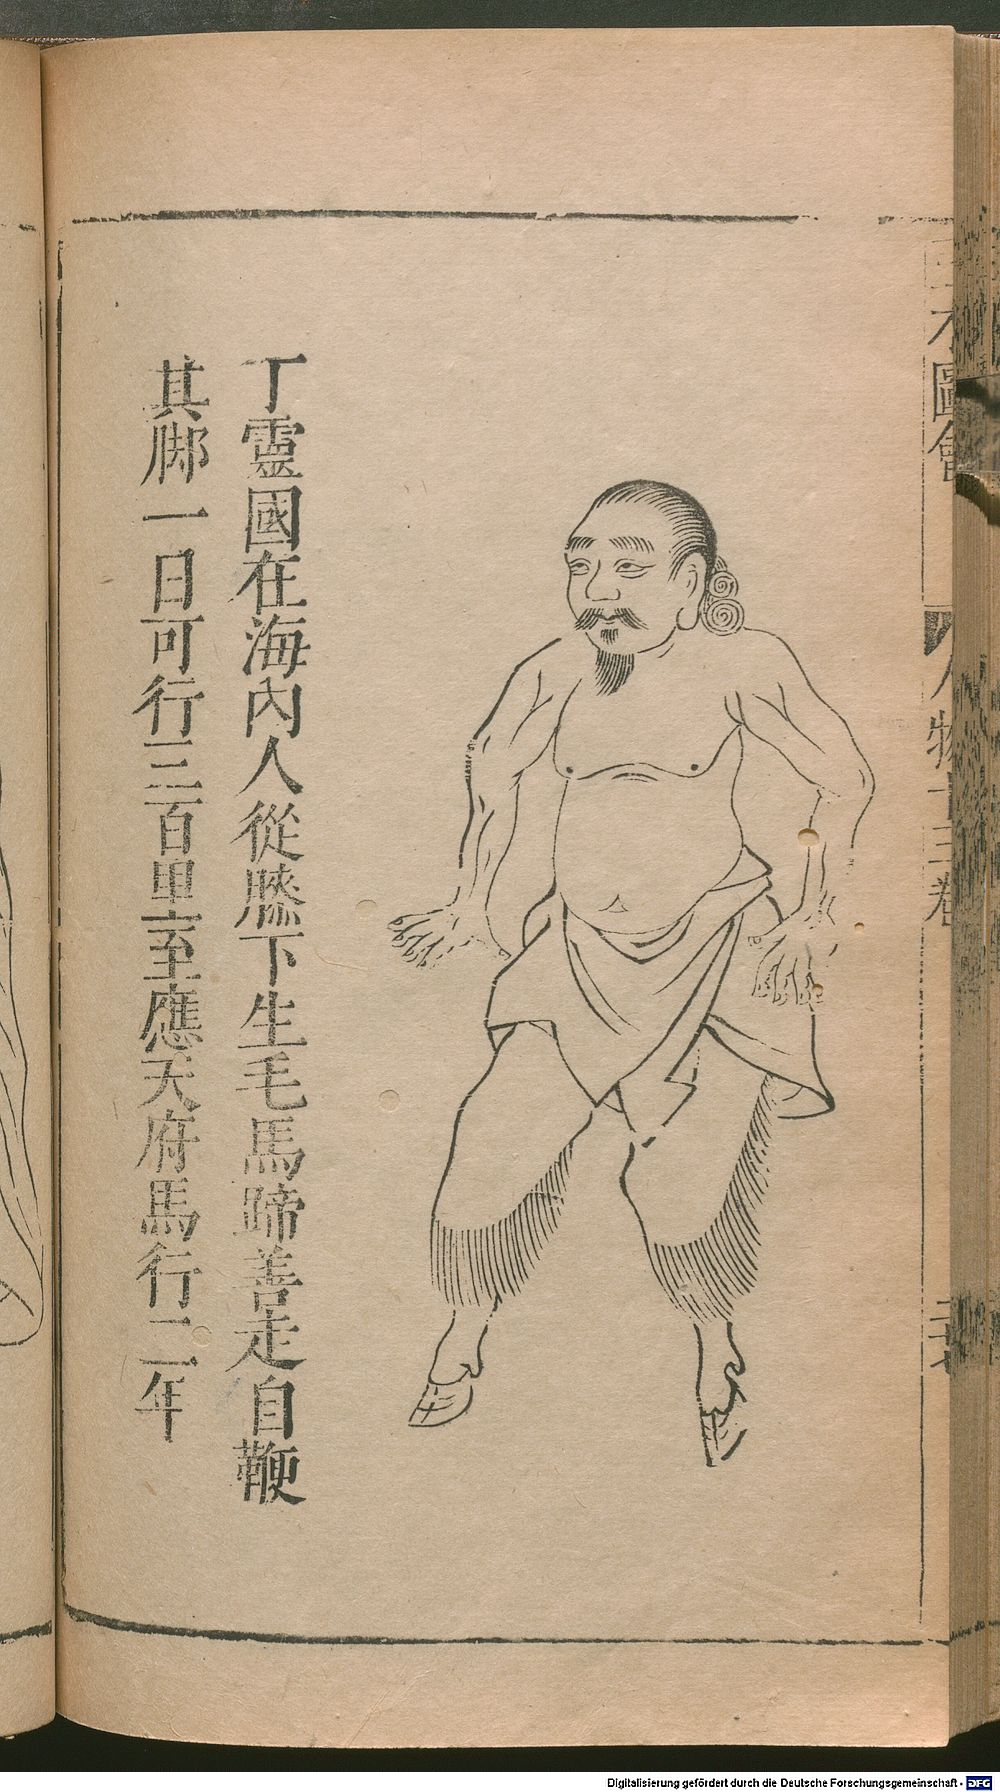 丁靈國在海內人從膝下生毛馬蹄善走自鞭
其脚一日可行三百里至應天府馬行二年
圖會
人物十三卷
Digitalisierung gefördert durch die Deutsche Forschungsgemeinschaft - DFG